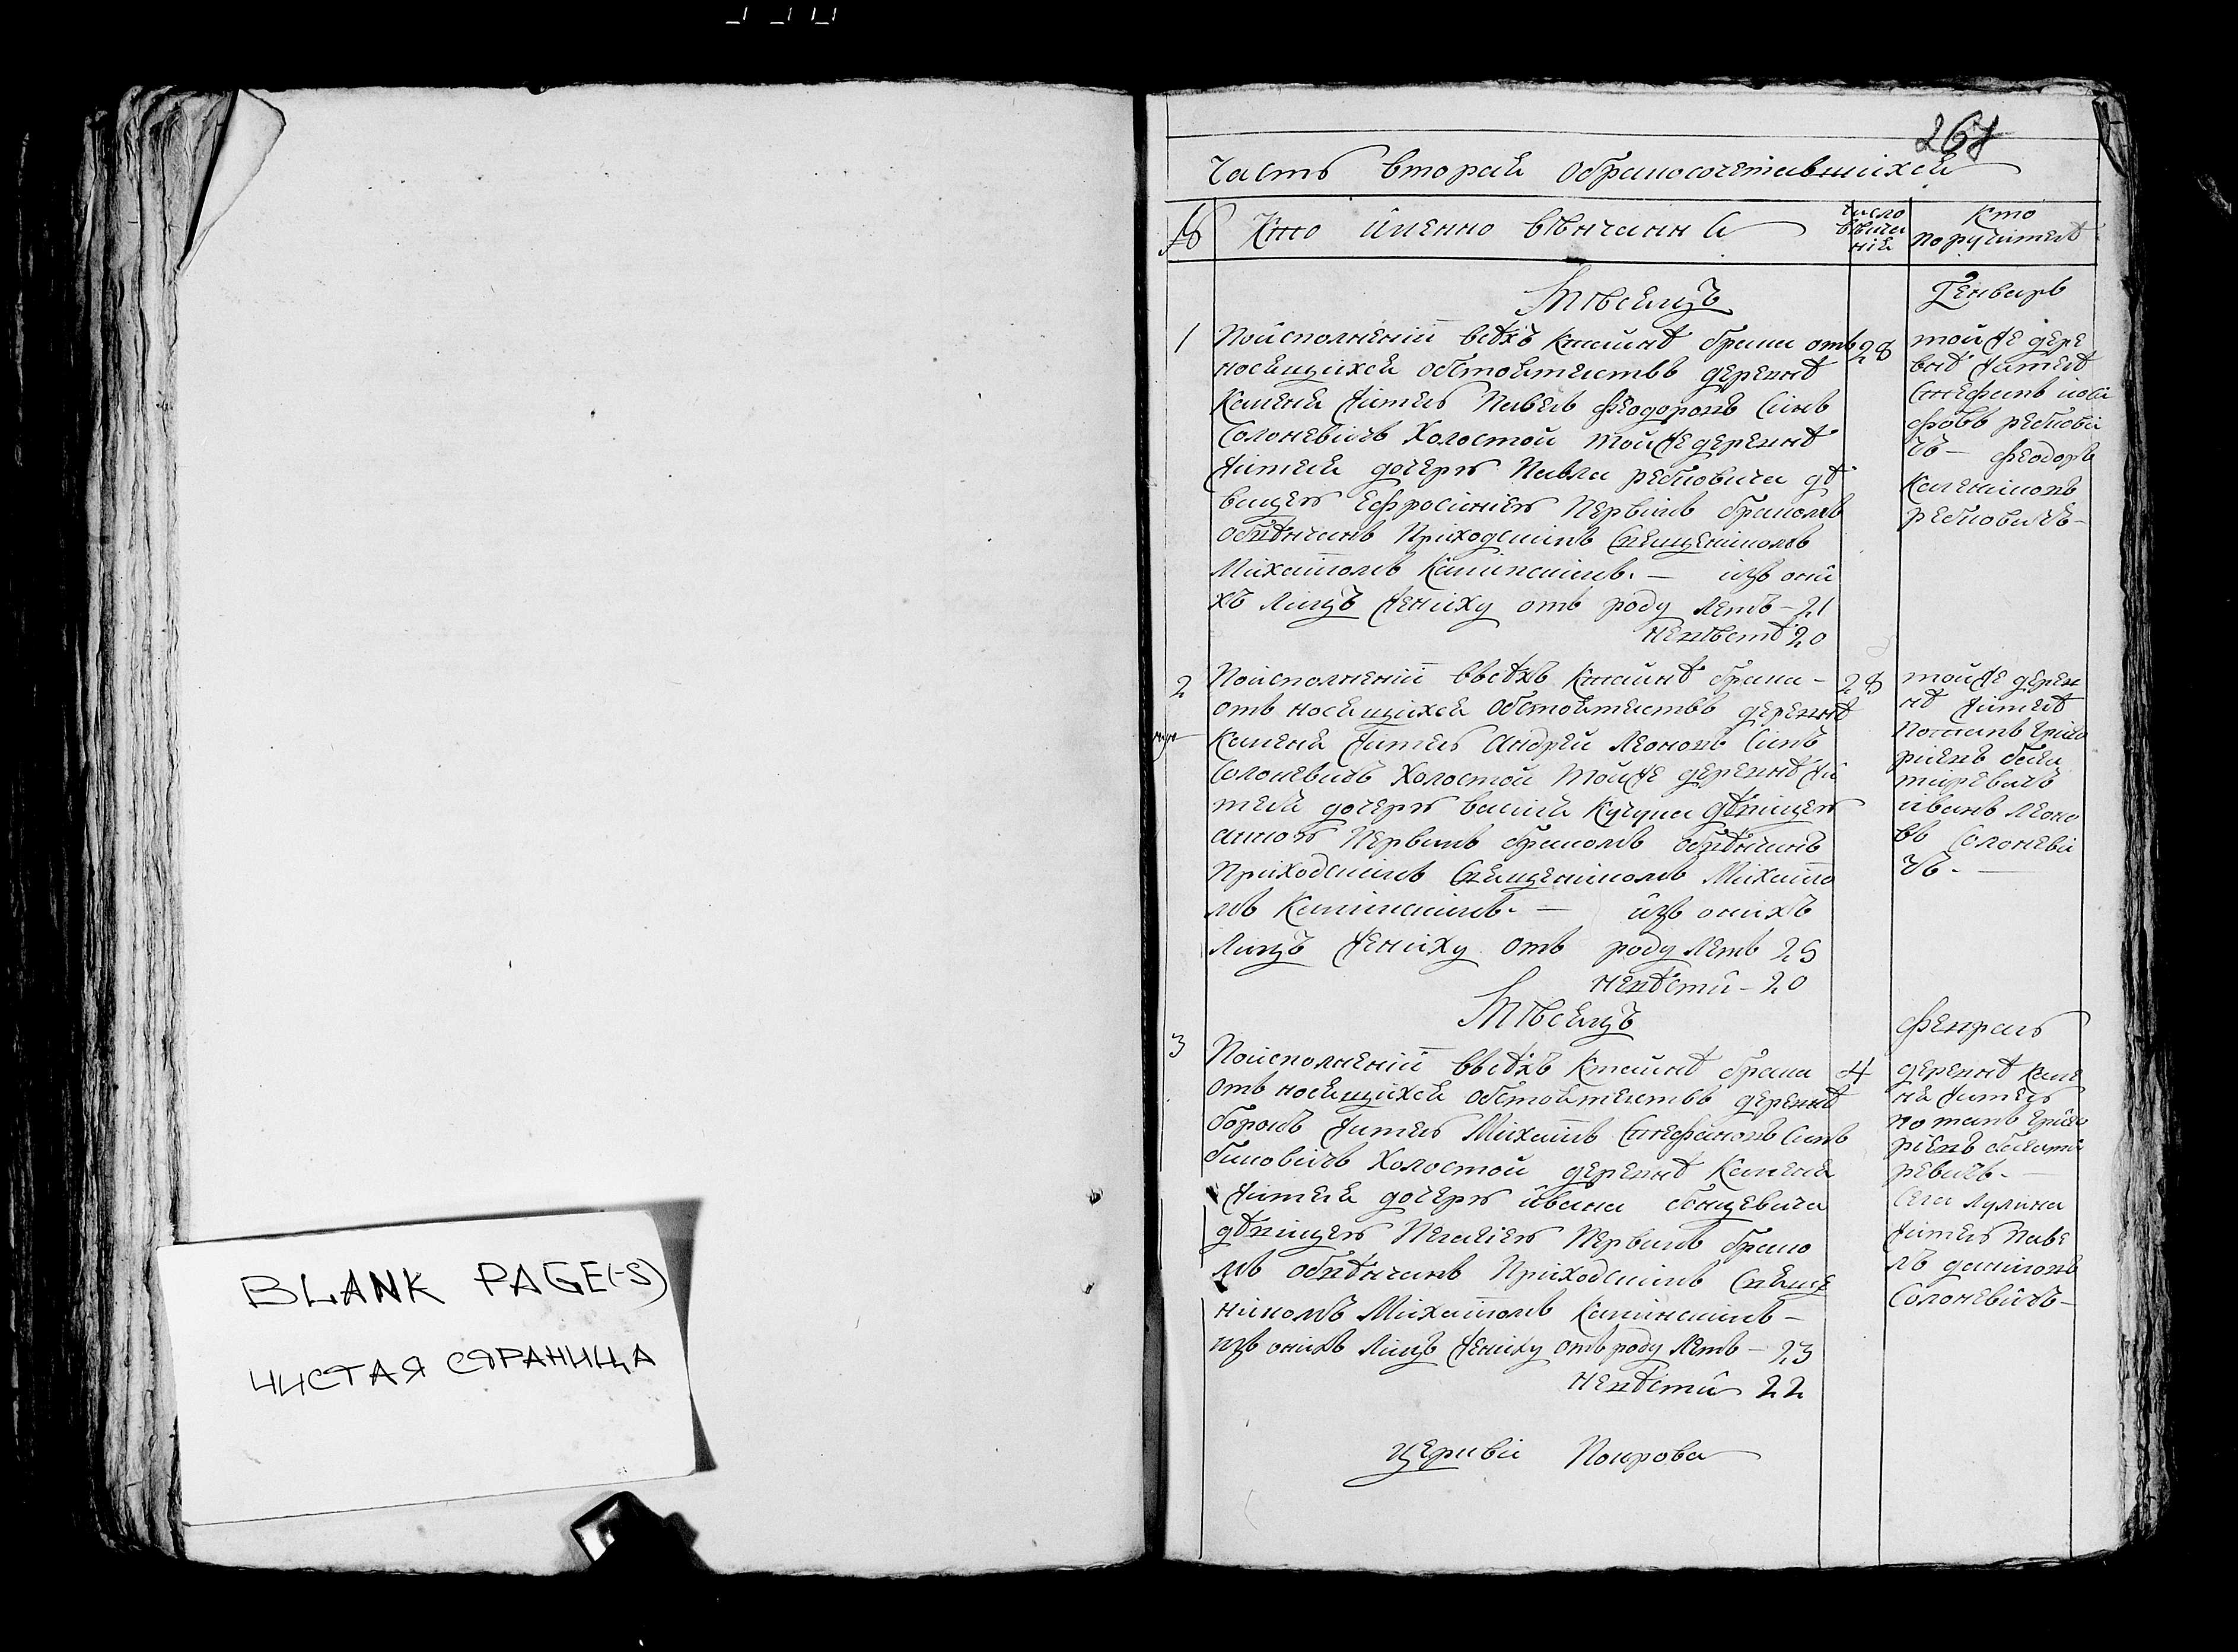 BLANK PAGE(-S)
ЧИСТАЯ СТРАНИЦА
268
Часть вторая обракосочетавшихся
№ Кто именно венчанны
число венчания
Кто поручители
Мѣсяцъ Генварь
1 Поисполнении всѣхъ ктайнѣ брака отъ 28
носящихся обстоятельствъ деревнѣ
Каменя житель Павелъ Феодоровъ синъ
Солоневичъ Холостой тойже деревнѣ
жителя дочерью Павла
вицею Ефросиниею Первимъ бракомъ
обвѣнчанъ Приходскимъ Священикомъ
Михаиломъ – изъ они
хъ лицъ жениху отъ роду летъ – 21
невѣстѣ 20
тойже дере
внѣ жителѣ
Стефанъ иоси
фовъ
чъ – Феодоръ
2 Поисполнении ввсѣхъ ктайнѣ брака – 28
отъ носящихся обстоятельствъ деревнѣ
Каменя житель Андрей Леоновъ синъ
Солоневичъ Холостой тойже деревнѣ жи
теля дочерью Кучука дѣвицею
анною Первимъ бракомъ обвѣнчанъ
Приходскимъ Священикомъ Михаило
мъ – изъ онихъ
Лицъ жениху отъ роду летъ 25
невѣсти – 20
тойже дерев
нѣ жителѣ
Потапъ григо
риевъ
иванъ Леоно
въ Солоневи
чъ. –
Мѣсяцъ Февраль
3 Поисполнении ввсѣхъ ктайнѣ брака 4
отъ носящихся обстоятельствъ деревнѣ
житель Михаилъ Стефановъ синъ
Холостой деревнѣ Каменя
жителя дочерью ивана
дѣвицею Пелагиею Первимъ брако
мъ обвѣнчанъ Приходскимъ Свяще
никомъ Михаиломъ –
изъ онихъ Лицъ жениху отъ роду летъ – 23
невѣсти 22
деревнѣ Каме
ня житель
потапъ григо
риевъ
ревичъ –
Села
житель Паве
лъ даниловъ
Солоневичъ –
церкви Покрова